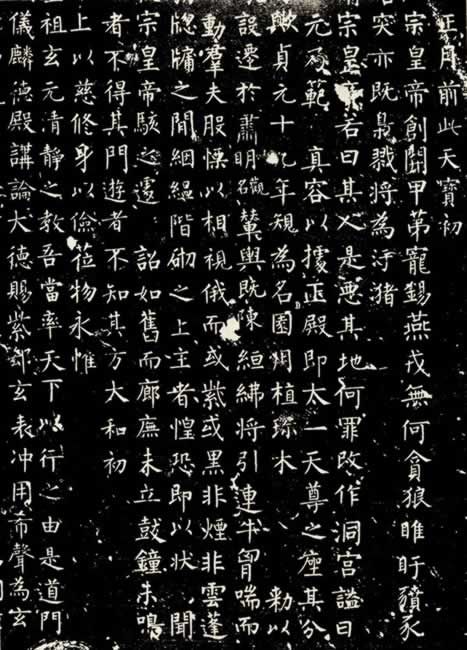 正月前此天寶初
宗皇帝創開甲第寵錫燕戎無何貪狼睢盱豶豕
突亦既梟戮將為汙猪
宗皇帝若曰其人是惡其地何罪改作洞宮謚曰
元乃範 真容以據正殿即太一天尊之座其分
歟貞元十九年規為名園用植珎木 勑以
設遷於肅明觀輦輿既陳絙紼將引連牛胷喘而
動羣夫股慄以相視俄而或紫或黑非煙非雲蓬
牕牖之間絪縕階砌之上主者惶恐即以狀 聞
宗皇帝駭之遽 詔如舊而廊廡未立鼓鐘未鳴
者不得其門遊者不知其方大和初
上以慈修身以儉莅物永惟
祖玄元清靜之教吾當率天下以行之由是道門
儀麟德殿講論大德賜紫鄧玄表冲用希聲為玄